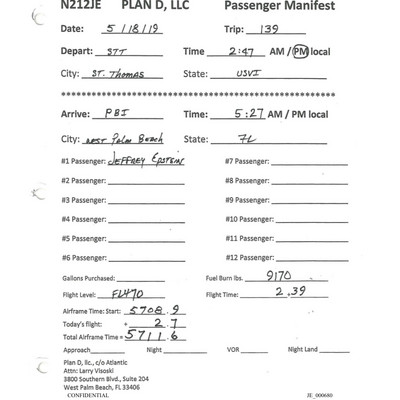 N212JE PLAN D, LLC Passenger Manifest
Date: 5/18/19 Trip: 139
Depart: STT Time 2:47 AM / PM local
City: ST. Thomas State: USVI
Arrive: PBI Time: 5:27 AM / PM local
City: West Palm Beach State: FL
#1 Passenger: Jeffrey Epstein #7 Passenger:
#2 Passenger: #8 Passenger:
#3 Passenger: #9 Passenger:
#4 Passenger: #10 Passenger:
#5 Passenger: #11 Passenger:
#6 Passenger: #12 Passenger:
Gallons Purchased: Fuel Burn lbs. 9170
Flight Level: FL470 Flight Time: 2.39
Airframe Time: Start: 5708.9
Today's flight: + 2.7
Total Airframe Time = 5711.6
Approach Night VOR Night Land
Plan D, llc., c/o Atlantic
Attn: Larry Visoski
3800 Southern Blvd., Suite 204
West Palm Beach, FL 33406
CONFIDENTIAL JE_000680